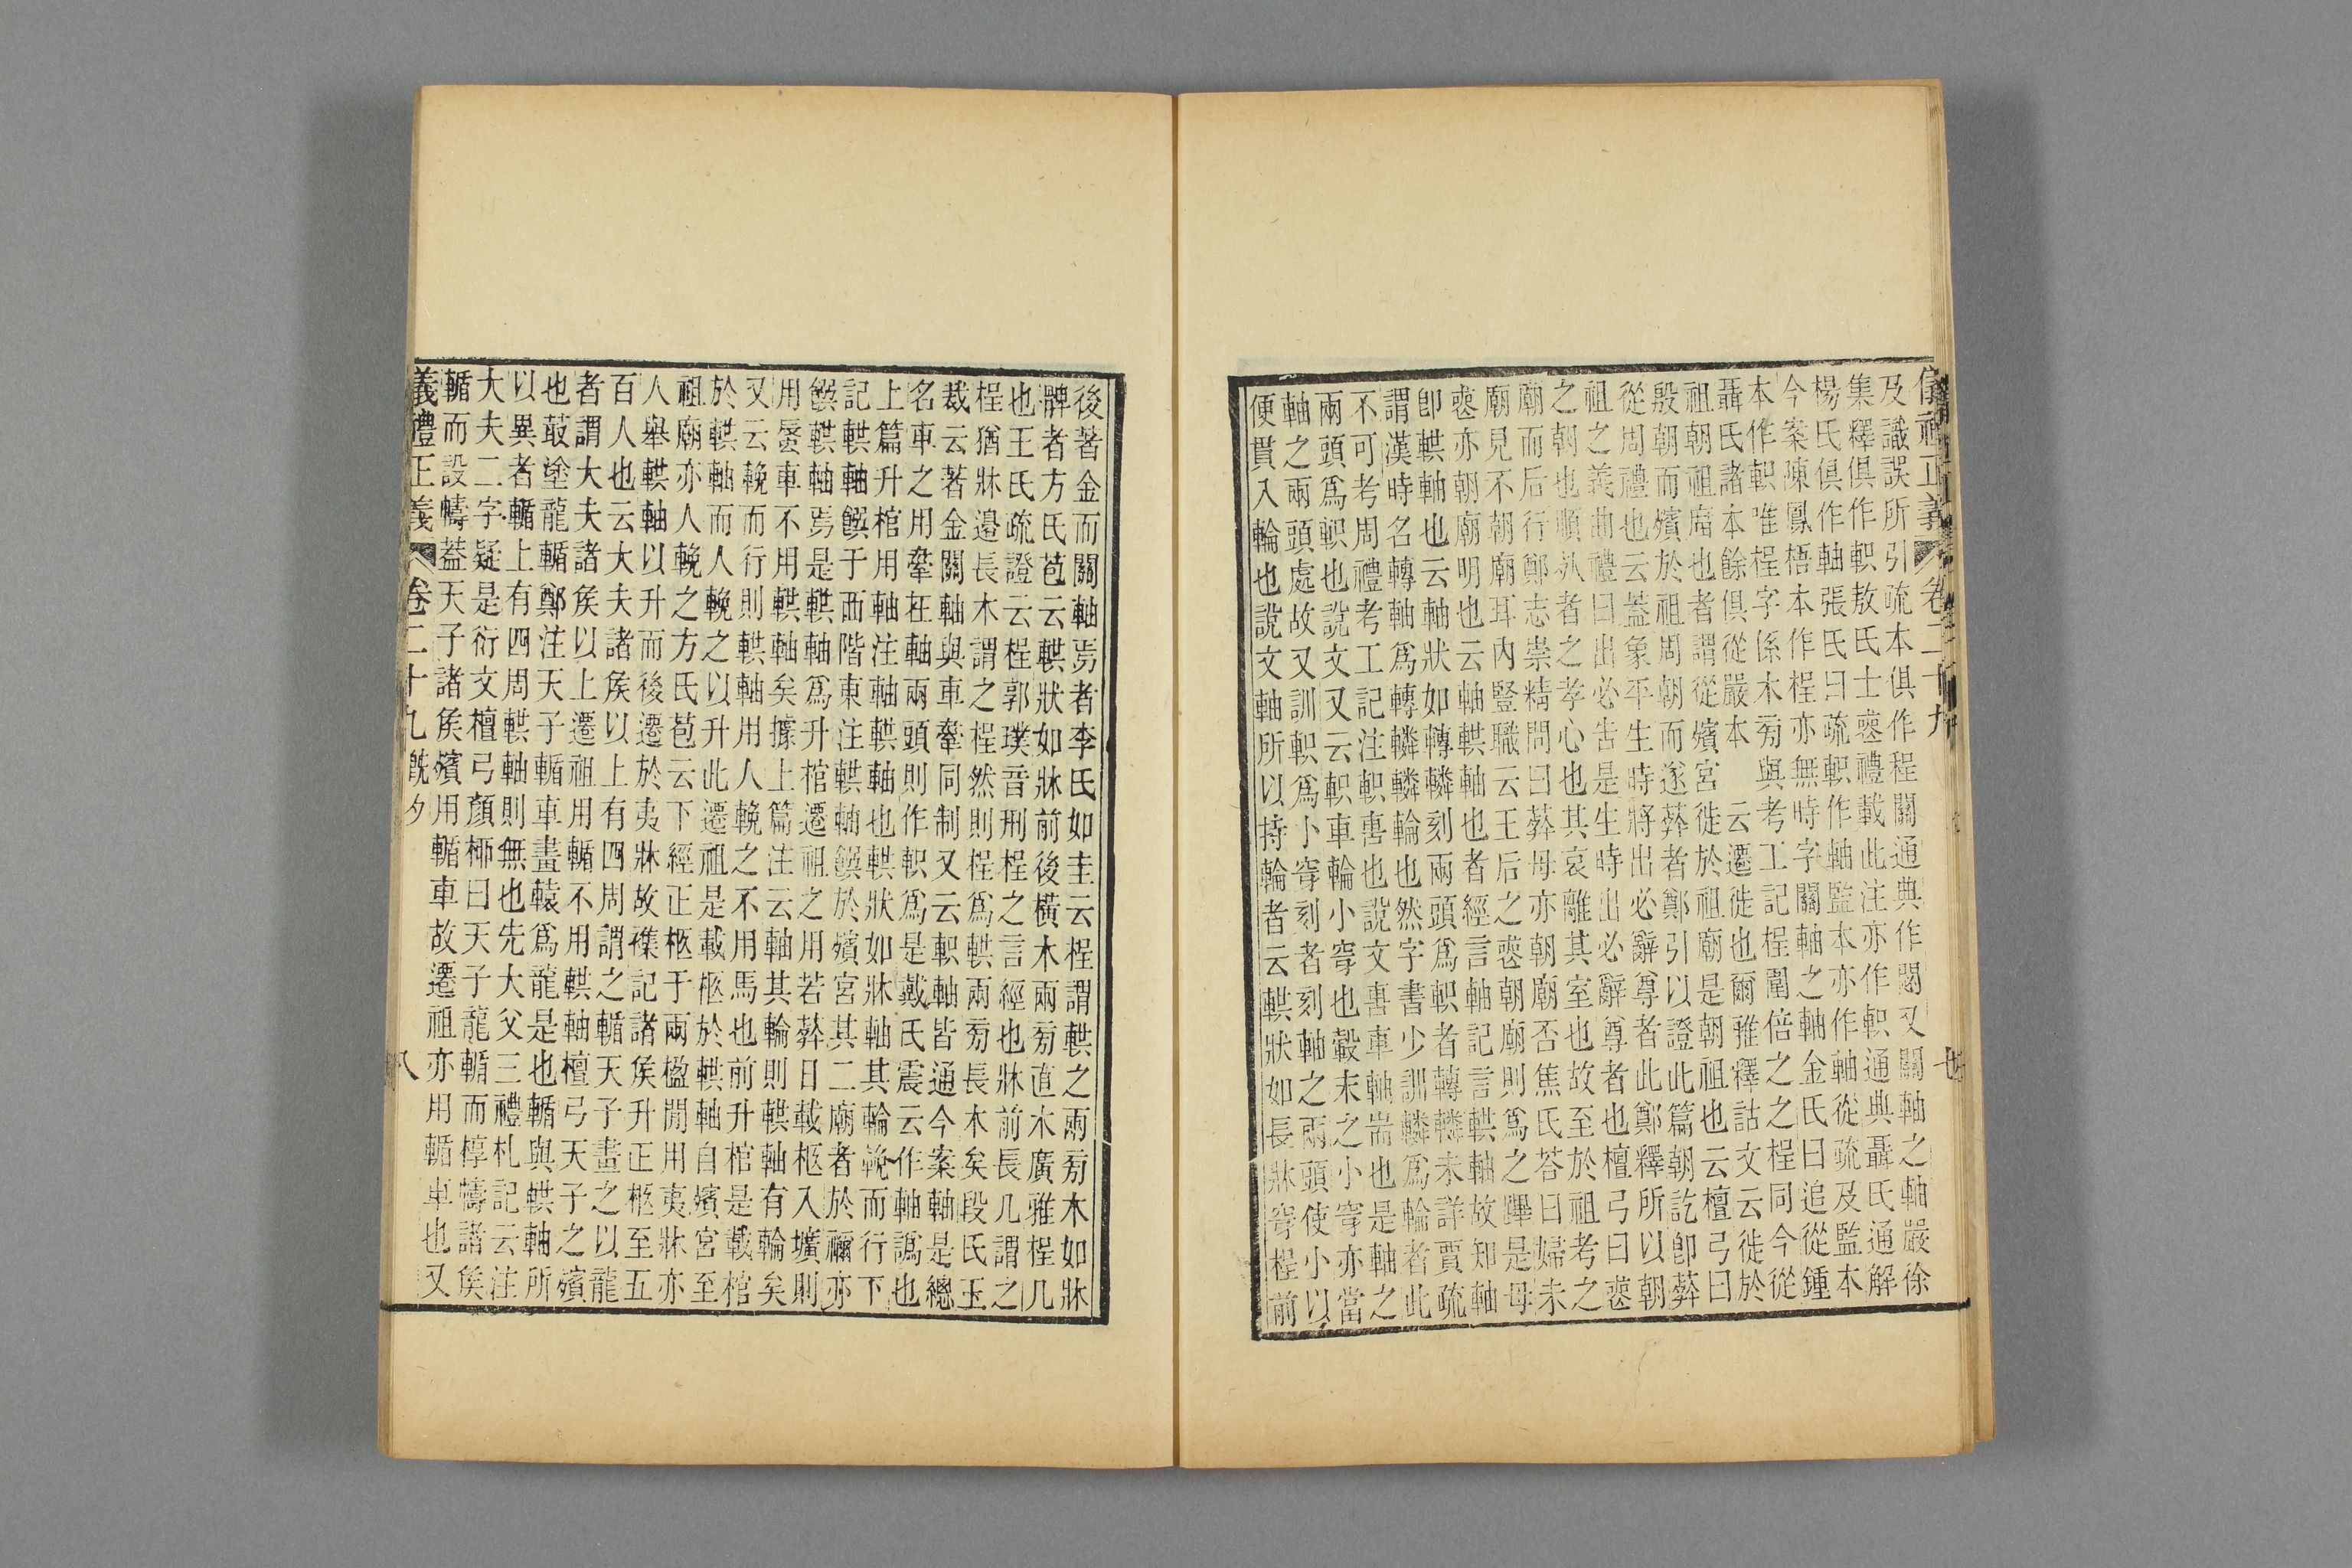 儀禮正義 卷二十九 七
及識誤所引疏本俱作桯關通典作閞又關軸之軸嚴徐
集釋俱作軹敖氏士喪禮載此注亦作軹通典聶氏通解
楊氏俱作軸張氏曰疏軹作軸監本亦作軸從疏及監本
今案陳鳳梧本作桯亦無時字關軸之軸金氏曰追從鍾
本作軹唯桯字係木旁與考工記桯圍倍之之桯同今從
聶氏諸本餘俱從嚴本 云遷徙也爾雅釋詁文云徙於
祖朝祖廟也者謂從殯宮徙於祖廟是朝祖也云檀弓曰
殷朝而殯於祖周朝而遂葬者鄭引以證此篇朝訖卽葬
從周禮也云蓋象平生時將出必辭尊者此鄭釋所以朝
祖之義曲禮曰出必告是生時出必辭尊者也檀弓曰喪
之朝也順死者之孝心也其哀離其室也故至於祖考之
廟而后行鄭志崇精問曰葬母亦朝廟否焦氏荅曰婦未
廟見不朝廟耳內豎職云王后之喪朝廟則爲之蹕是母
喪亦朝廟明也云軸輁軸也者經言軸記言輁軸故知軸
卽輁軸也云軸狀如轉轔刻兩頭爲軹者轉轔未詳賈疏
謂漢時名轉軸爲轉轔轔輪也然字書少訓轔爲輪者此
不可考周禮考工記注軹軎也說文軎車軸耑也是軸之
兩頭爲軹也說文又云軹車輪小穿也轂末之小穿亦當
軸之兩頭處故又訓軹爲小穿刻者刻軸之兩頭使小以
便貫入輪也說文軸所以持輪者云輁狀如長牀穿桯前
後著金而關軸焉者李氏如圭云桯謂輁之兩旁木如牀
髀者方氏苞云輁狀如牀前後橫木兩旁直木廣雅桯几
也王氏疏證云桯郭璞音刑桯之言經也牀前長几謂之
桯猶牀邊長木謂之桯然則桯爲輁兩旁長木矣段氏玉
裁云著金關軸與車舝同制又云軹軸皆通今案軸是總
名車之用舝在軸兩頭則作軹爲是戴氏震云作軸譌也
上篇升棺用軸注軸輁軸也輁狀如牀軸其輪輓而行下
記輁軸饌于西階東注輁軸饌於殯宮其二廟者於禰亦
饌輁軸焉是輁軸爲升棺遷祖之用若葬日載柩入壙則
用蜃車不用輁軸矣據上篇注云軸其輪則輁軸有輪矣
又云輓而行則輁軸用人輓之不用馬也前升棺是載棺
於輁軸而人輓之以升此遷祖是載柩於輁軸自殯宮至
祖廟亦人輓之方氏苞云下經正柩于兩楹閒用夷牀亦
人舉輁軸以升而後遷於夷牀故襍記諸矦升正柩至五
百人也云大夫諸矦以上有四周謂之輴天子畫之以龍
者謂大夫諸矦以上遷祖用輴不用輁軸檀弓天子之殯
也菆塗龍輴鄭注天子輴車畫轅爲龍是也輴與輁軸所
以異者輴上有四周輁軸則無也先大父三禮札記云注
大夫二字疑是衍文檀弓顏柳曰天子龍輴而椁幬諸矦
輴而設幬蓋天子諸矦殯用輴車故遷祖亦用輴車也又
義禮正義 卷二十九 旣夕 八